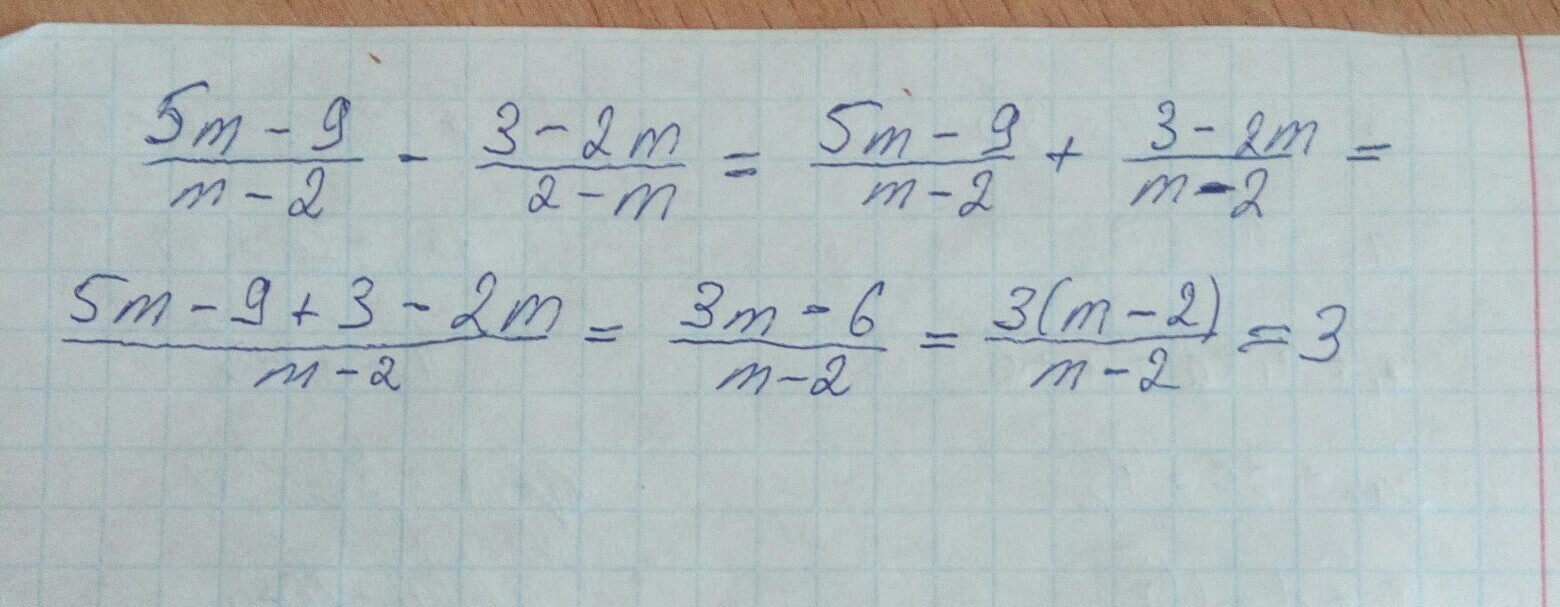 (5m - 9)/(m - 2) - (3 - 2m)/(2 - m) = (5m - 9)/(m - 2) + (3 - 2m)/(m - 2) =
(5m - 9 + 3 - 2m)/(m - 2) = (3m - 6)/(m - 2) = 3(m - 2)/(m - 2) = 3